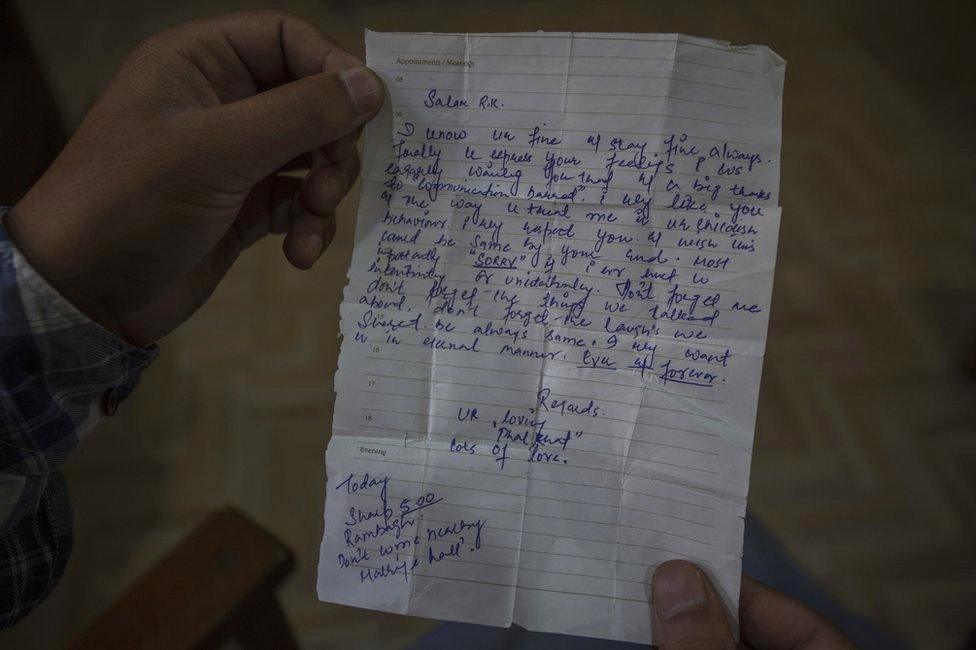 Appointments / Meetings
08
Salam R.K.
09
I know ur fine & stay fine always.
Finally u express your feelings & was
eagerly waiting you that & a big thanks
to communication banned". i rly like you
& the way u treat me is ur childish
behaviour. i rly respect you & wish this
could be same by your end. Most
importantly "SORRY" if i ever hurt u
intentionly or unidentionly. Don't forget me
don't forget the things we talked
about, don't forget the laugh's we
15
Shared. be always same, I rly want
16
u in eternal manner. Ever & forever.
17
Regards.
18
UR loving
"
Lots of love.
Evening
Today
Sharp 5:00
Rambagh.
Don't come nearby
Marriage hall".